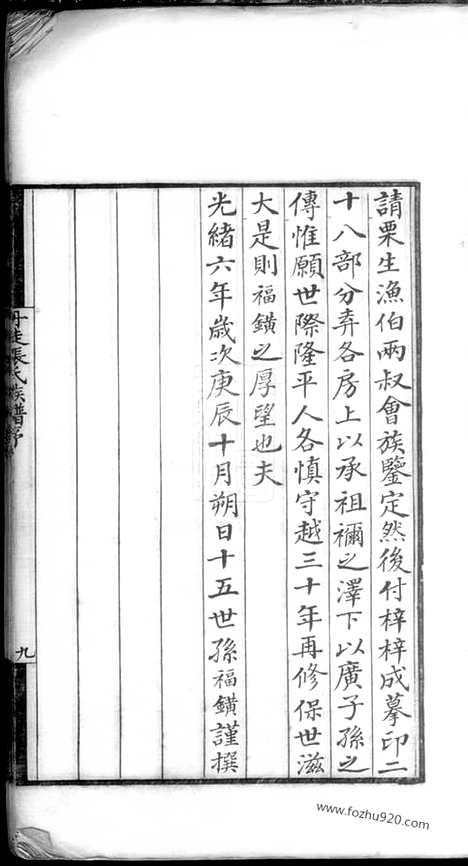 請栗生漁伯兩叔會族鑒定然後付梓梓成摹印二
十八部分弆各房上以承祖禰之澤下以廣子孫之
傳惟願世際隆平人各慎守越三十年再修保世滋
大是則福鐄之厚望也夫
光緒六年歲次庚辰十月朔日十五世孫福鐄謹撰
張氏族譜序
九
www.fozhu920.com